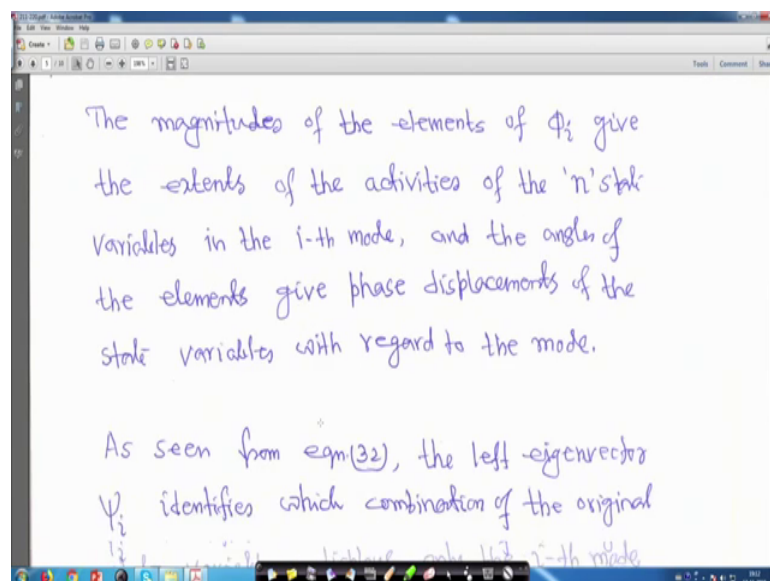 211-220.pdf - Adobe Acrobat Pro
File Edit View Window Help
Create
1 / 10
Tools Comment Share
The magnitudes of the elements of Φi give
the extents of the activities of the 'n' state
variables in the i-th mode, and the angles of
the elements give phase displacements of the
state variables with regard to the mode.
As seen from eqn.(32), the left eigenvector
Ψi identifies which combination of the original
displays only the i-th mode